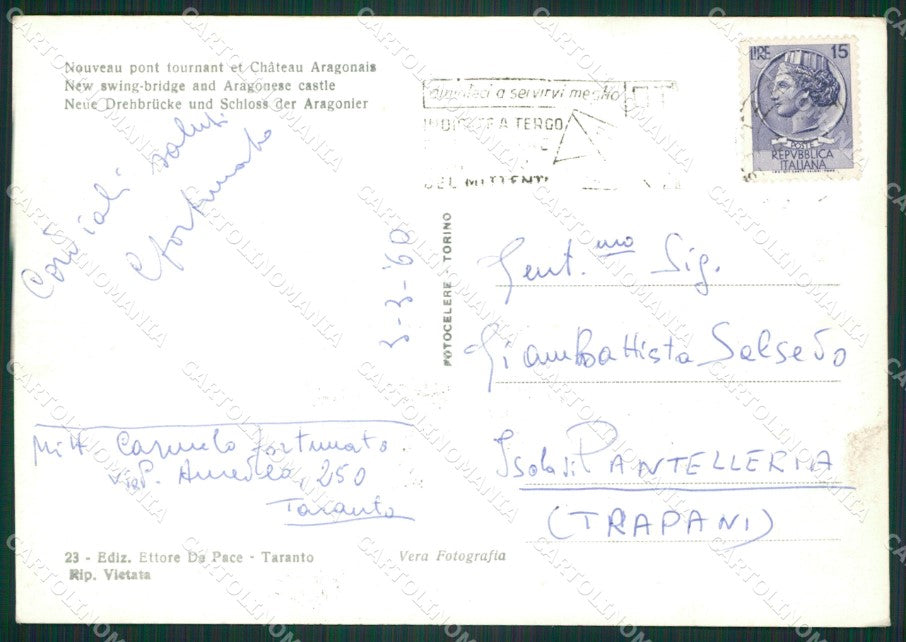 Nouveau pont tournant et Château Aragonais
New swing-bridge and Aragonese castle
Neue Drehbrücke und Schloss der Aragonier
Cordiali saluti
C fortunato
3-3-'60
mitt. Carmelo fortunato.
via P. Amedeo, 250
Taranto
23 - Ediz. Ettore De Pace - Taranto
Rip. Vietata
Vera Fotografia
FOTOCELERE - TORINO
aiutateci a servirvi meglio
INDICATE A TERGO
DEL MITTENTE
LIRE 15
POSTE
REPVBBLICA
ITALIANA
Gent.mo Sig.
Giambattista Salsedo
Isola di PANTELLERIA
(TRAPANI)
CARTOLINOMANIA